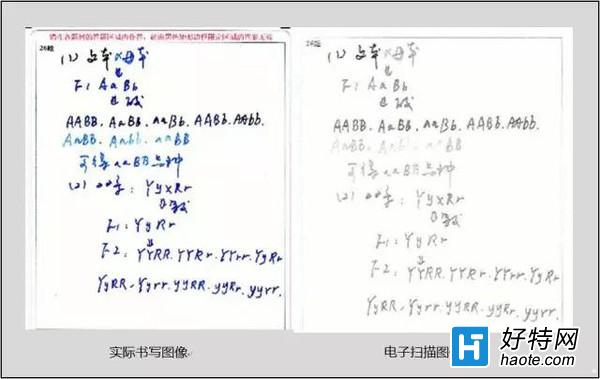 请在各题目的答题区域内作答，超出黑色矩形边框限定区域的答案无效
26题
(1) 父本×母本
F1 AaBb
AABB. AaBB. aaBb. AABb. AAbb.
AaBB. Aabb. aaBB
可得aaBB品种
(2) YyxRr
F1: YyRr
F2: YYRR. YYRr. YYrr. YyRr
YyRR. Yyrr. yyRR. yyRr. yyrr.
26题
(1) 父本×母本
F1 AaBb
AABB. AaBB. aaBb. AABb. AAbb.
AaBB. Aabb. aaBB
可得aaBB品种
(2) YyxRr
F1: YyRr
F2: YYRR. YYRr. YYrr. YyRr
YyRR. Yyrr. yyRR. yyRr. yyrr.
实际书写图像
电子扫描图
好特网
haote.com